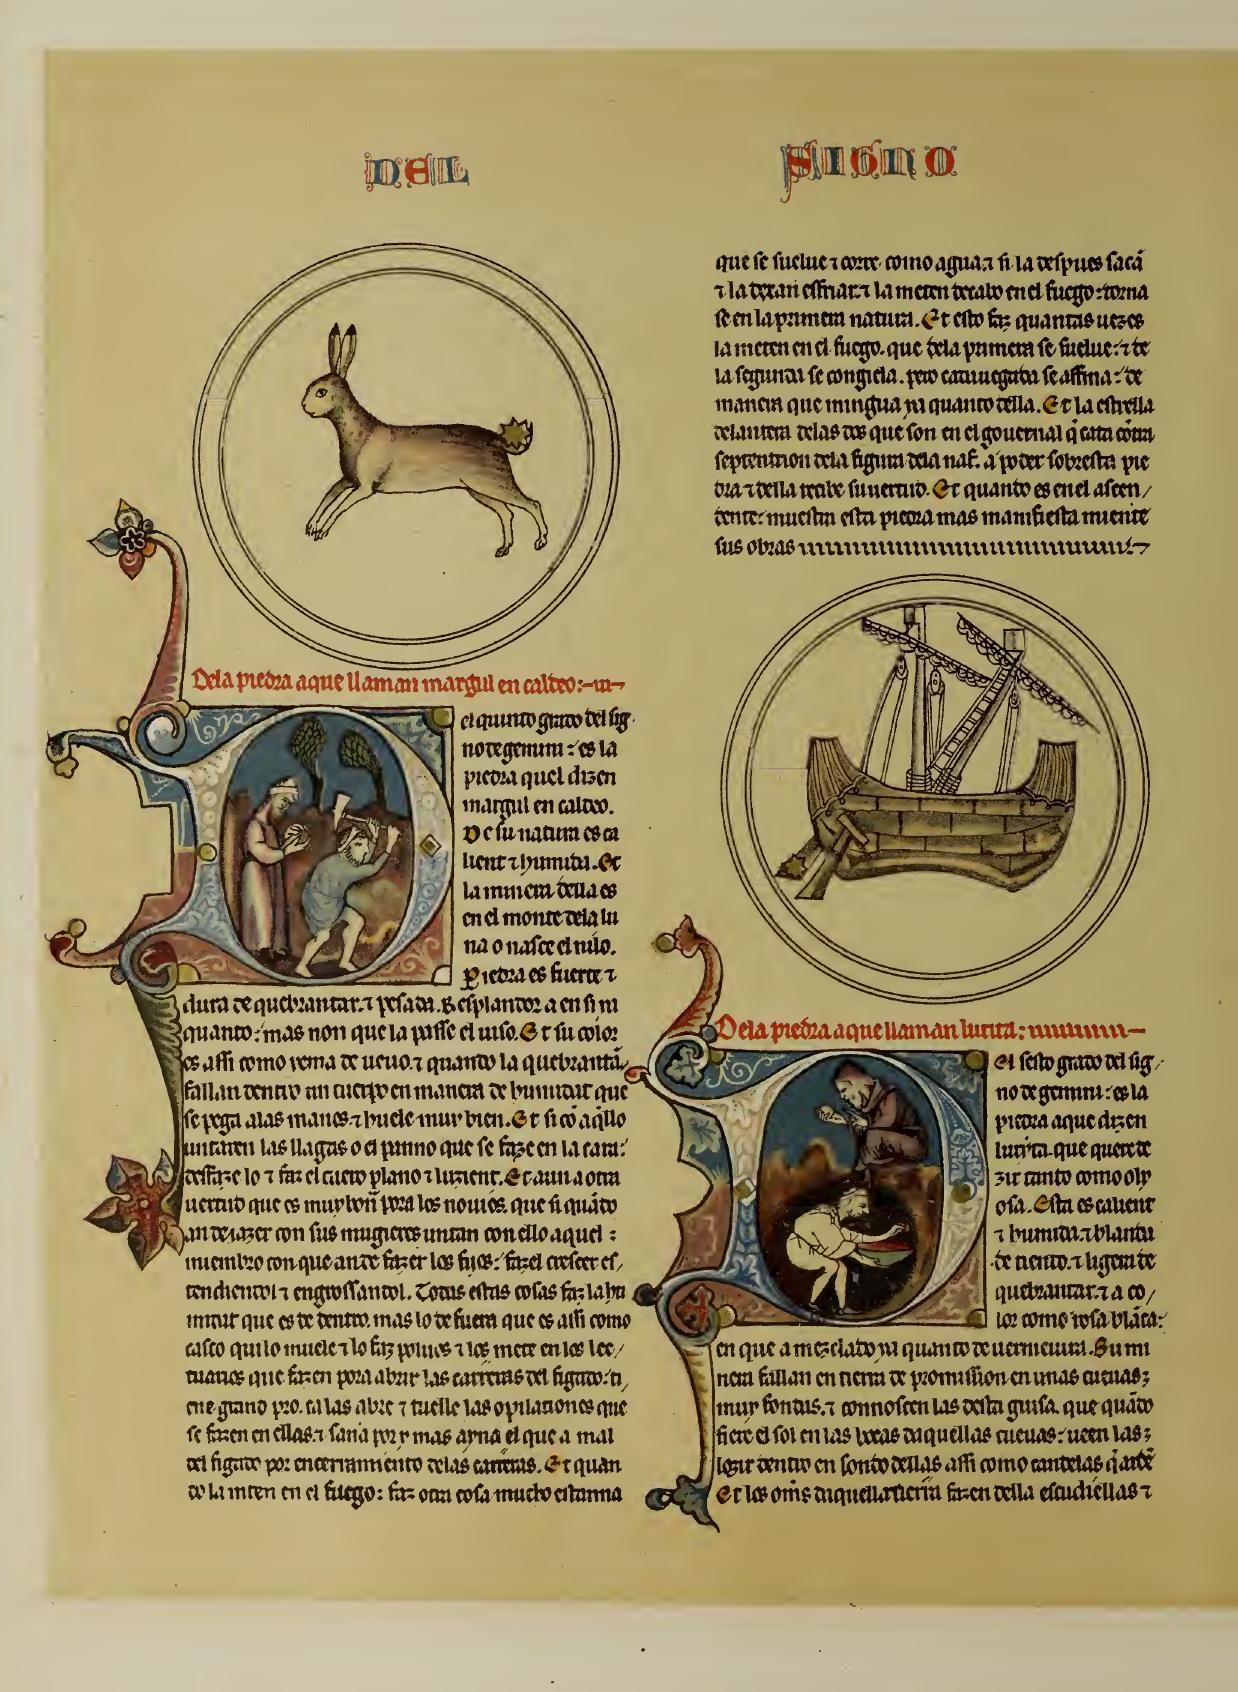 DEL SIGNO
Dela piedra aque llaman margul en caldeo:
Del quinto grado del sig
no de gemini: es la
piedra quel dizen
margul en caldeo.
De su natura es ca
lient ⁊ humida. Et
la minera della es
en el monte dela lu
na o nasce el nilo.
Piedra es fuerte ⁊
dura de quebrantar. ⁊ pesada. esplandor a en si ya
quanto: mas non que la passe el uiso. Et su color
es assi como yema de ueuo. ⁊ quando la quebrantã,
fallan dentro un cuerpo en manera de humidat que
se pega alas manos. ⁊ huele muy bien. Et si cõ aq̃llo
untaren las llagas o el panno que se faze en la cara:
desfaze lo ⁊ faz el cuero plano ⁊ luzient. Et aun a otra
uertud que es muy bon̄ pora los nouios. que si quãdo
an de iazer con sus mugieres untan con ello aquel
miembro con que an de fazer los fijos: fazel crescer es,
tendiendol ⁊ engrossandol. Todas estas cosas faz la hu
midat que es de dentro. mas lo de fuera que es assi como
casco qui lo muele ⁊ lo faz poluos ⁊ los mete en los lec,
tuarios que fazen pora abrir las carreras del figado: ti,
ene grand pro. ca las abre ⁊ tuelle las opilationes que
se fazen en ellas. ⁊ sana por y mas ayna el que a mal
del figado por encerramiento delas carreras. Et quan
do la meten en el fuego: faz otra cosa mucho estranna
que se suelue ⁊ corre. como agua. ⁊ si la despues sacã
⁊ la dexan esfriar. ⁊ la meten decabo en el fuego: torna
se en la primera natura. Et esto faz quantas uezes
la meten en el fuego. que dela primera se suelue: ⁊ de
la segunda se congiela. pero cada uegada se affina: de
manera que mingua ya quanto della. Et la estrella
delantera delas dos que son en el gouernal q̃ cata cõtra
septentrion dela figura dela naf. a poder sobresta pie
dra ⁊ della recibe su uertud. Et quando es en el ascen,
dente: muestra esta piedra mas manifiesta miente
sus obras
Dela piedra aque llaman lurita:
Del sesto grado del sig,
no de gemini: es la
piedra aque dizen
lurita. que quere de
zir tanto como oly
osa. Esta es calient
⁊ humida. ⁊ blanda
de tiento. ⁊ ligera de
quebrantar. ⁊ a co,
lor como rosa blãca:
en que a mezclado ya quanto de uermeiura. Su mi
nera fallan en tierra de promission en unas cueuas;
muy fondas. ⁊ connoscen las desta guisa. que quãdo
fiere el sol en las bocas daquellas cueuas: ueen las;
lozir dentro en fondo dellas assi como candelas q̃ ardẽ
Et los om̃s daquella tierra fazen della escudiellas ⁊